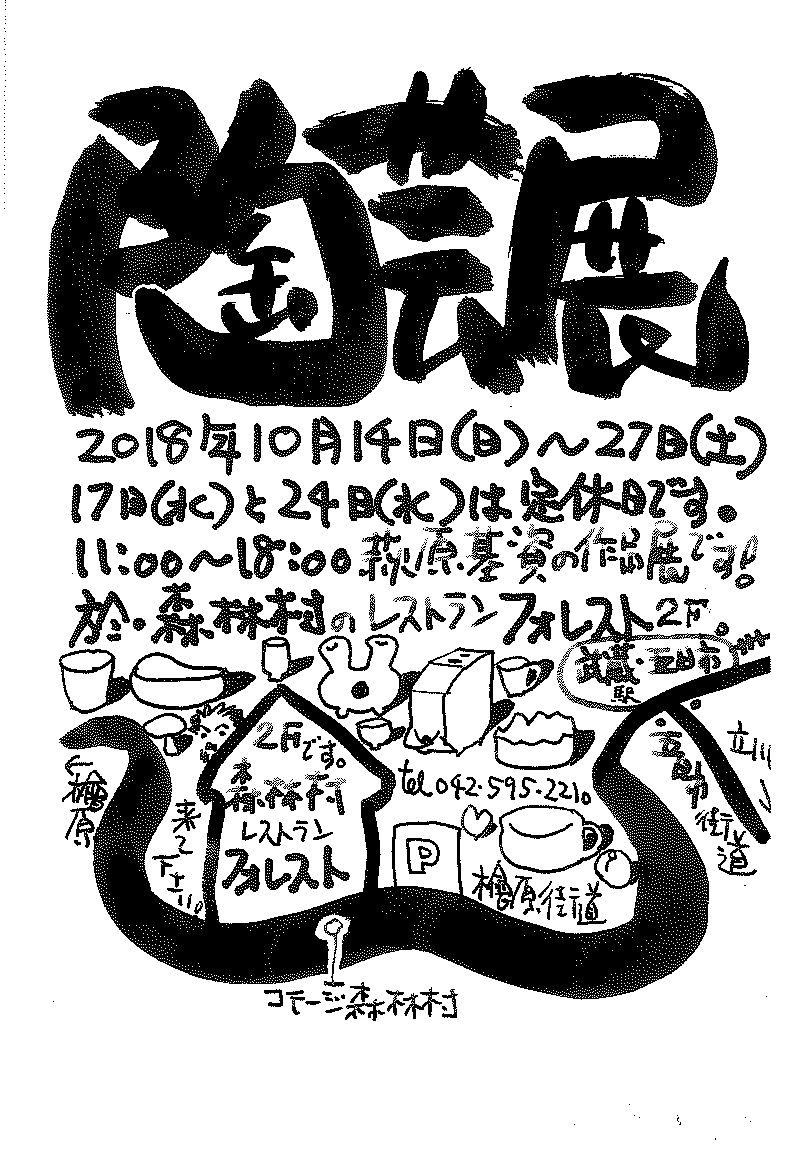 陶芸展
2018年10月14日(日)～27日(土)
17日(水)と24日(水)は定休日です。
11:00～18:00 萩原基資の作品展です!
於・森林村のレストランフォレスト2F。
武蔵・五日市
駅
2Fです。
森林村
レストラン
フォレスト
tel 042・595・2210
←檜原
来て下さい!!
P
檜原街道
五日市街道
立川
コテージ森林村